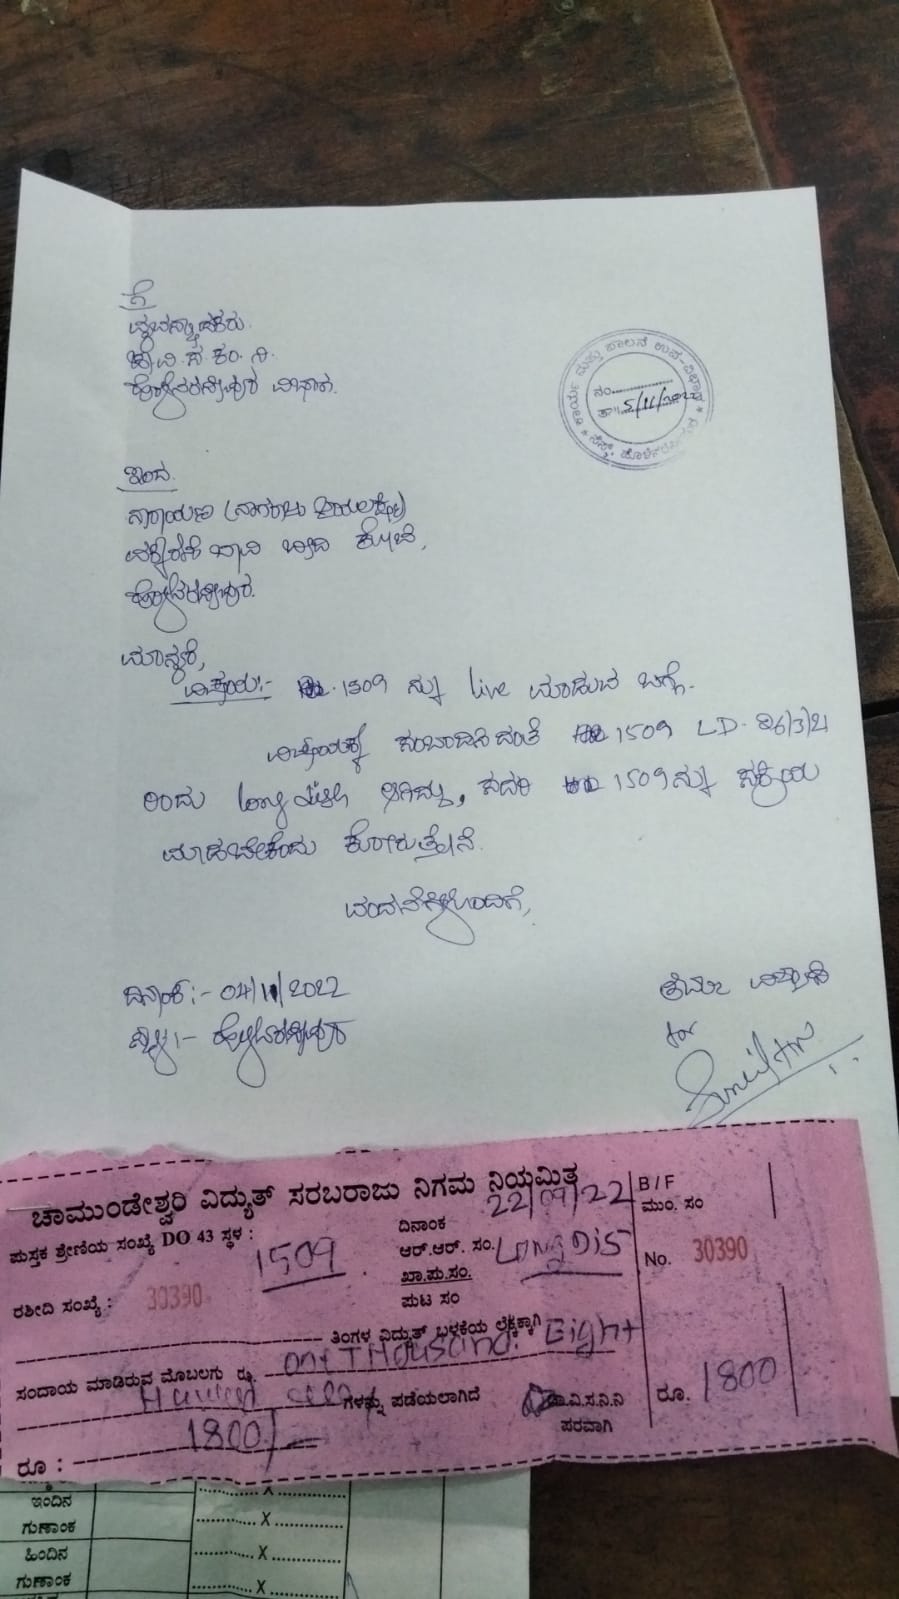 ಗೆ
ವ್ಯವಸ್ಥಾಪಕರು.
ಹೊಳೆನರಸೀಪುರ ವಿಭಾಗ.
ಕಾರ್ಯ ಮತ್ತು ಪಾಲನೆ ಉಪ-ವಿಭಾಗ
ನಂ..............
ತಾ|| 5/11/2022
ಇಂದ.
ನಾರಾಯಣ
ಬಾವಿ ಬೀದಿ ಕೋಟೆ,
ಹೊಳೆನರಸೀಪುರ.
ಮಾನ್ಯರೆ,
ವಿಷಯ:- 1509 ನ್ನು live ಮಾಡುವ ಬಗ್ಗೆ.
ವಿಷಯಕ್ಕೆ ಸಂಬಂಧಿಸಿದಂತೆ 1509 LD
ರಂದು long ಆಗಿದ್ದು, ಸದರಿ 1509 ನ್ನು ಸಕ್ರಿಯ
ಮಾಡಬೇಕೆಂದು ಕೋರುತ್ತೇನೆ.
ವಂದನೆಗಳೊಂದಿಗೆ,
ದಿನಾಂಕ:- 04/11/2022
ಸ್ಥಳ:- ಹೊಳೆನರಸೀಪುರ
ತಮ್ಮ ವಿಶ್ವಾಸಿ
for
ಚಾಮುಂಡೇಶ್ವರಿ ವಿದ್ಯುತ್ ಸರಬರಾಜು ನಿಗಮ ನಿಯಮಿತ
ಪುಸ್ತಕ ಶ್ರೇಣಿಯ ಸಂಖ್ಯೆ DO 43 ಸ್ಥಳ :
1509
ದಿನಾಂಕ 22/09/22
ಆರ್.ಆರ್. ಸಂ. Long DIS
ಖಾ.ಪು.ಸಂ.
ಪುಟ ಸಂ
ರಶೀದಿ ಸಂಖ್ಯೆ : 30390
ತಿಂಗಳ ವಿದ್ಯುತ್ ಬಳಕೆಯ ಲೆಕ್ಕಕ್ಕಾಗಿ
ಸಂದಾಯ ಮಾಡಿರುವ ಮೊಬಲಗು ರೂ. one THousand Eight
ಗಳನ್ನು ಪಡೆಯಲಾಗಿದೆ
ಚಾ.ವಿ.ಸ.ನಿ.ನಿ
ಪರವಾಗಿ
ರೂ : 1800/-
B / F
ಮುಂ. ಸಂ
No. 30390
ರೂ. 1800
ಇಂದಿನ
ಗುಣಾಂಕ
ಹಿಂದಿನ
ಗುಣಾಂಕ
............X............
............X............
............X............
............X............